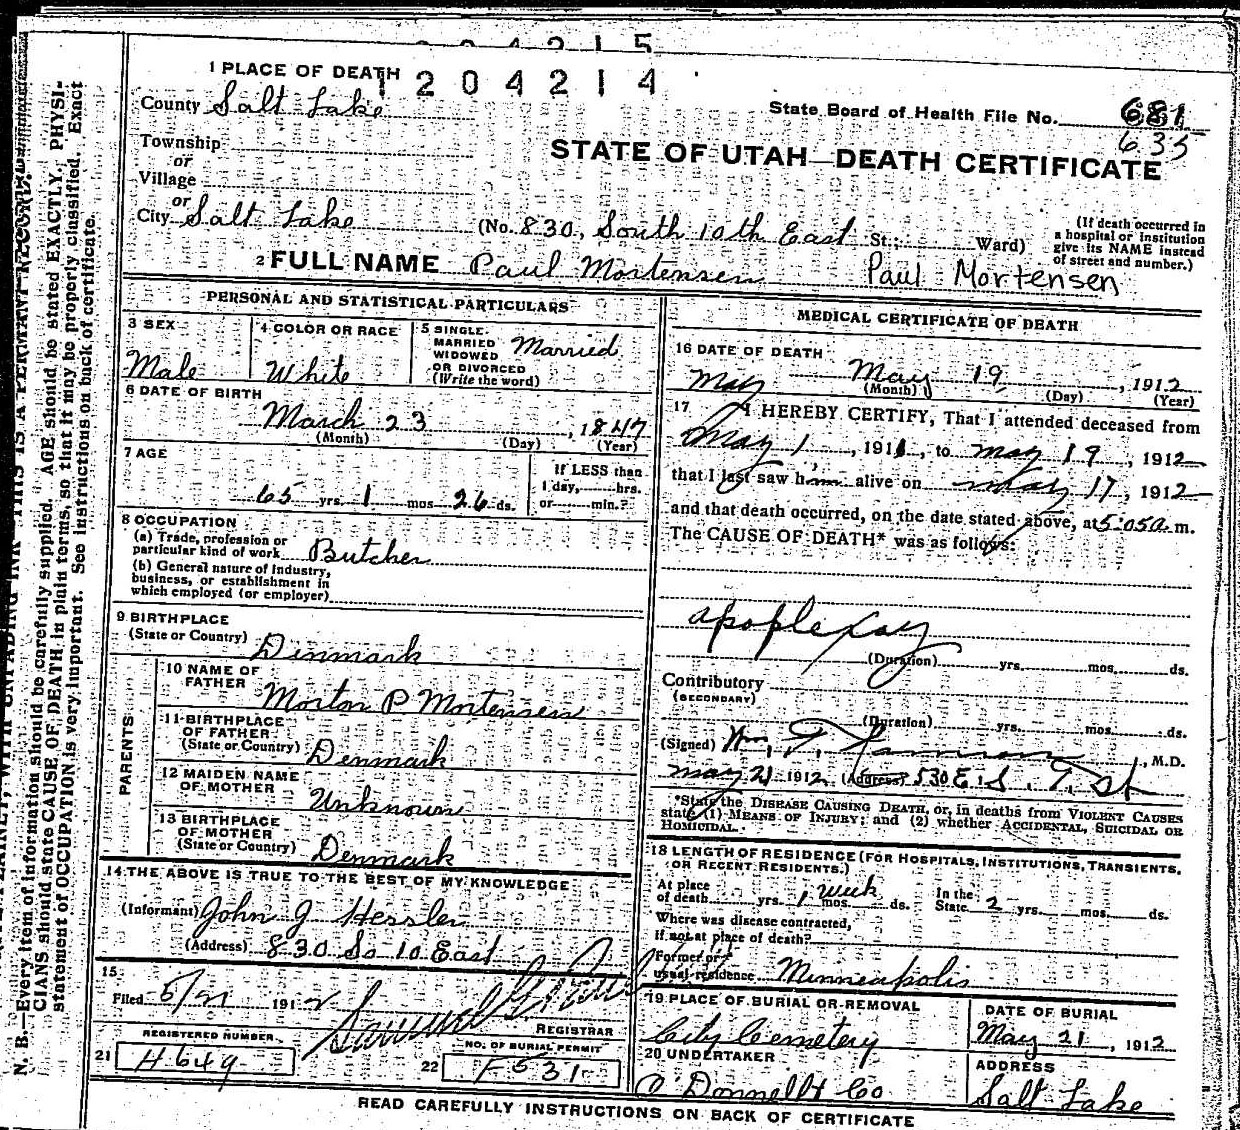 204215
1 PLACE OF DEATH
1204214
County Salt Lake
State Board of Health File No. 681
635
Township
or
Village
or
STATE OF UTAH—DEATH CERTIFICATE
City Salt Lake (No. 830, South 10th East St.; Ward)
(If death occurred in
a hospital or institution
give its NAME instead
of street and number.)
2 FULL NAME Paul Mortensen Paul Mortensen
PERSONAL AND STATISTICAL PARTICULARS
3 SEX
Male
4 COLOR OR RACE
White
5 SINGLE
MARRIED
WIDOWED
OR DIVORCED
(Write the word)
Married
6 DATE OF BIRTH
March 23, 1847
(Month) (Day) (Year)
7 AGE
65 yrs. 1 mos. 26 ds.
If LESS than
1 day, hrs.
or min.?
8 OCCUPATION
(a) Trade, profession or
particular kind of work Butcher
(b) General nature of industry,
business, or establishment in
which employed (or employer)
9 BIRTHPLACE
(State or Country) Denmark
PARENTS
10 NAME OF
FATHER
Morton P Mortensen
11 BIRTHPLACE
OF FATHER
(State or Country) Denmark
12 MAIDEN NAME
OF MOTHER
Unknown
13 BIRTHPLACE
OF MOTHER
(State or Country) Denmark
14 THE ABOVE IS TRUE TO THE BEST OF MY KNOWLEDGE
(Informant) John J Hessler
(Address) 830 So 10 East
15
Filed 5/21 1912
REGISTRAR
REGISTERED NUMBER
21 H649
NO. OF BURIAL PERMIT
22 F531
MEDICAL CERTIFICATE OF DEATH
16 DATE OF DEATH
May May 19, 1912
(Month) (Day) (Year)
17 I HEREBY CERTIFY, That I attended deceased from
May 1, 1911, to May 19, 1912
that I last saw him alive on May 17, 1912
and that death occurred, on the date stated above, at 5:05a m.
The CAUSE OF DEATH* was as follows:
apoplexy
(Duration) yrs. mos. ds.
Contributory
(SECONDARY)
(Duration) yrs. mos. ds.
(Signed) Wm. T. , M.D.
May 21 1912 (Address) 530 E. S. T. St
*State the DISEASE CAUSING DEATH, or, in deaths from VIOLENT CAUSES
state (1) MEANS OF INJURY; and (2) whether ACCIDENTAL, SUICIDAL OR
HOMICIDAL.
18 LENGTH OF RESIDENCE (FOR HOSPITALS, INSTITUTIONS, TRANSIENTS,
OR RECENT RESIDENTS.)
At place
of death yrs. 1 week mos. ds.
In the
State 2 yrs. mos. ds.
Where was disease contracted,
if not at place of death?
Former or
usual residence Minneapolis
19 PLACE OF BURIAL OR REMOVAL
City Cemetery
DATE OF BURIAL
May 21, 1912
20 UNDERTAKER
O'Donnell & Co
ADDRESS
Salt Lake
READ CAREFULLY INSTRUCTIONS ON BACK OF CERTIFICATE
N. B.—Every item of information should be carefully supplied. AGE should be stated EXACTLY. PHYSI-
CIANS should state CAUSE OF DEATH in plain terms, so that it may be properly classified. Exact
statement of OCCUPATION is very important. See instructions on back of certificate.